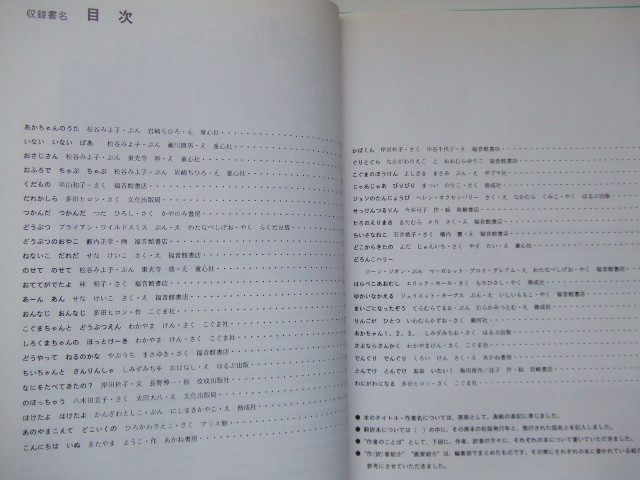 収録書名 目次
あかちゃんのうた 松谷みよ子・ぶん 岩崎ちひろ・え 童心社
いない いない ばあ 松谷みよ子・ぶん 瀬川康男・え 童心社
おさじさん 松谷みよ子・ぶん 東光寺 啓・え 童心社
おふろで ちゃぷ ちゃぷ 松谷みよ子・ぶん 岩崎ちひろ・え 童心社
くだもの 平山和子・さく 福音館書店
だれかしら 多田ヒロシ・さく 文化出版局
つかんだ つかんだ つだ ひろし・さく かやのみ書房
どうぶつ ブライアン・ワイルドスミス ぶん・え わたなべしげお・やく らくだ出版
どうぶつのおやこ 薮内正幸・画 福音館書店
ねないこ だれだ せな けいこ さく・え 福音館書店
のせて のせて 松谷みよ子・ぶん 東光寺 啓・え 童心社
おててがでたよ 林 明子・さく 福音館書店
あーん あん せな けいこ さく・え 福音館書店
おんなじ おんなじ 多田ヒロシ・作 こぐま社
こぐまちゃんと どうぶつえん わかやま けん・さく こぐま社
しろくまちゃんの ほっとけーき わかやま けん・さく こぐま社
どうやって ねるのかな やぶうち まさゆき・さく 福音館書店
ちいちゃんと さんりんしゃ しみずみちを おはなし・え ほるぷ出版
なにをたべてきたの？ 岸田衿子・文 長野博一・絵 佼成出版社
のぼっちゃう 八木田宜子・さく 太田大八・え 文化出版局
はけたよ はけたよ かんざわとしこ・ぶん にしまきかやこ・え 偕成社
あのやまこえて どこいくの ひろかわさえこ・さく アリス館
こんにちは いぬ きたやま ようこ・作 あかね書房
かばくん 岸田衿子・さく 中谷千代子・え 福音館書店
ぐりとぐら なかがわりえこ と おおむらゆりこ 福音館書店
こぐまのぼうけん よしざき まさみ ぶん・え ポプラ社
じゃあじゃあ びりびり まつい のりこ・さく 偕成社
せっけんつるりん 今井弓子 作・絵 岩崎書店
ちいさなねこ 石井桃子・さく 横内 襄・え 福音館書店
どこからきたの よだ じゅんいち・さく やす たい・え 童心社
どろんこハリー
ジーン・ジオン・ぶん マーガレット・ブロイ・グレアム・え わたなべしげお・やく 福音館書店
はらぺこあおむし エリック・カール・さく もりひさし・やく 偕成社
ゆかいなかえる ジュリエット・キープス ぶん・え いしいももこ・やく 福音館書店
まいごになったぞう てらむらてるお・ぶん むらかみつとむ・え 偕成社
りんごが ひとつ いわむらかずお・さく 銀河社
あかちゃん 1、2、3、 しみずみちを・さく ほるぷ出版
さよならさんかく わかやまけん・さく こぐま社
でんぐり でんぐり くろい けん さく・え あかね書房
とんでけ とんでけ おお いたい！ 梅田俊作／佳子 作・絵 岩崎書店
わにがわになる 多田ヒロシ・さく こぐま社
●本のタイトル・作者名については、原則として、各紙の表記に準じました。
●翻訳本については（ ）の中に、その原本の初版発行年と、発行された国名とを記入しました。
●“作者のことば” として、下段に、作者、訳者の方々に、それぞれの本について書いていただきました。
●“作(訳)者紹介” “画家紹介” は、編集部でまとめたものです。その際にそれぞれの本に書かれている紹介
参考にさせていただきました。